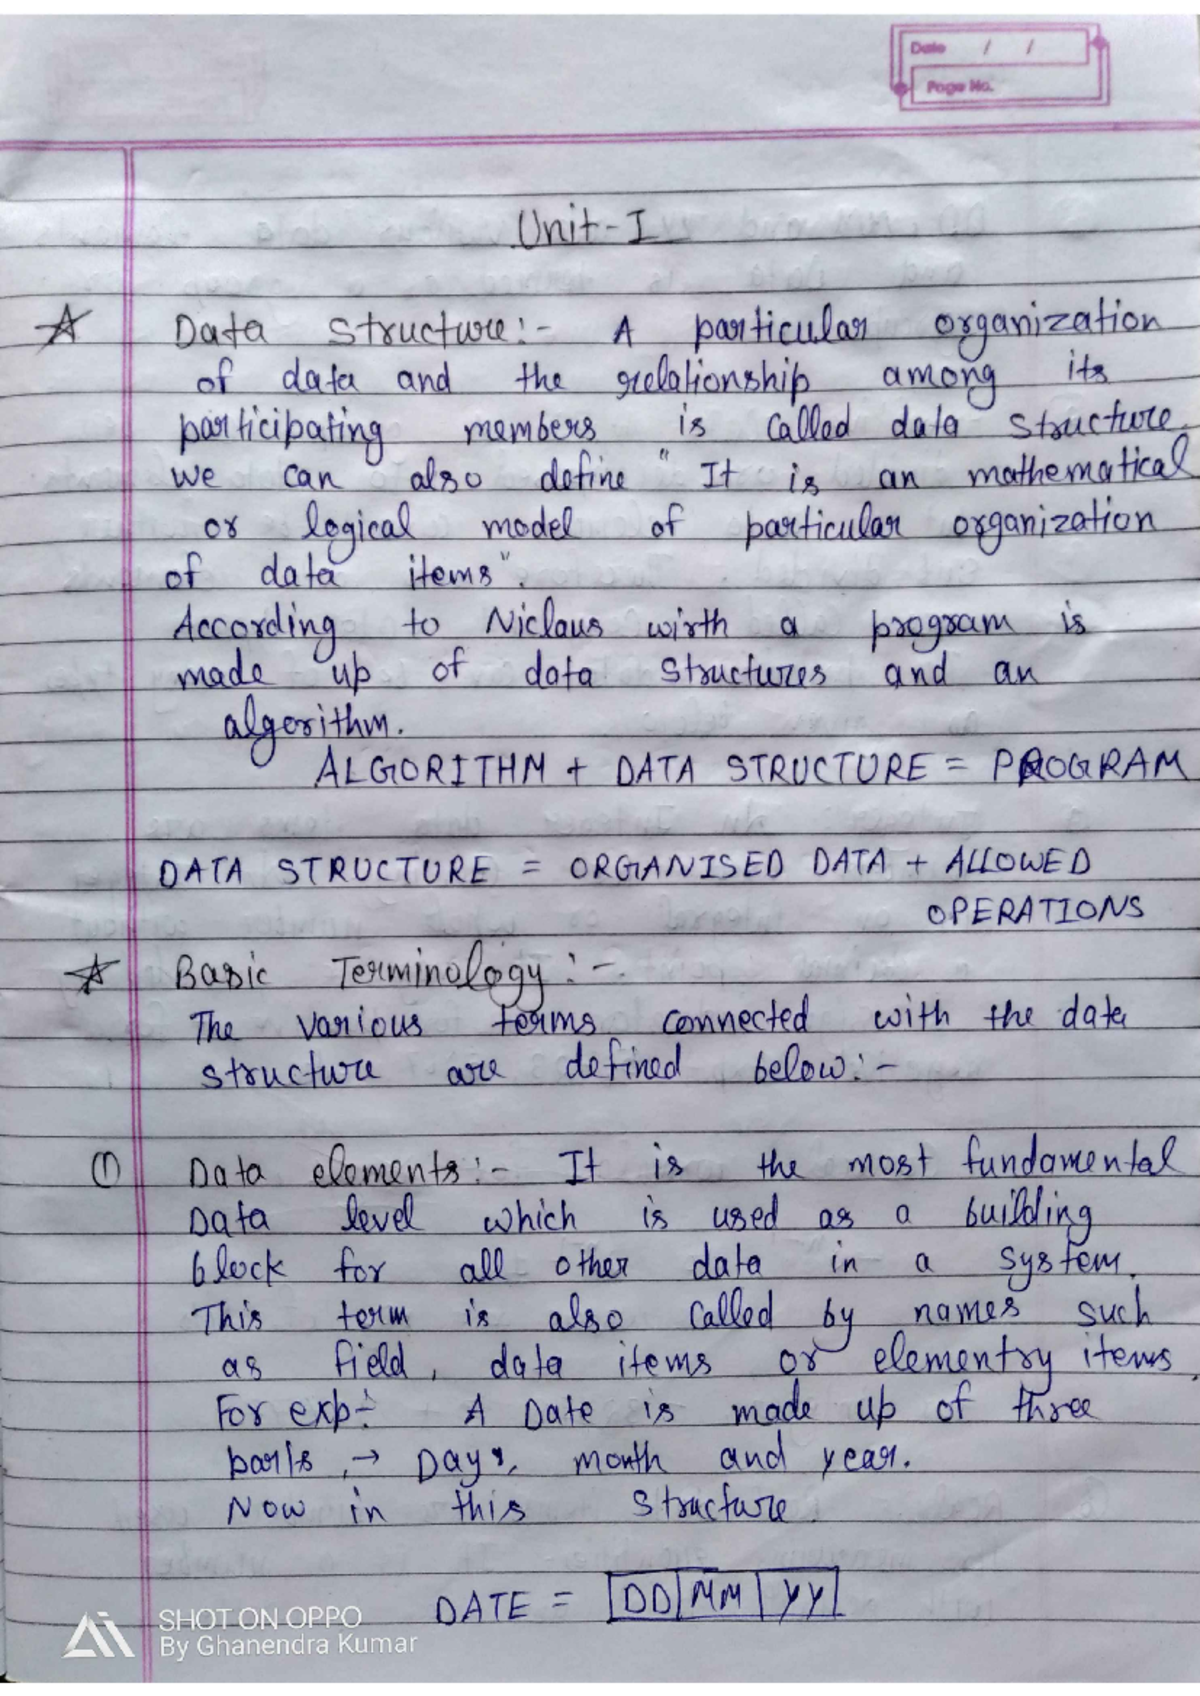 Date / /
Page No.
Unit-I
☆ Data Structure:- A particular organization
of data and the relationship among its
participating members is called data structure.
we can also define " It is an mathematical
or logical model of particular organization
of data items".
According to Niclaus wirth a program is
made up of data structures and an
algorithm.
ALGORITHM + DATA STRUCTURE = PROGRAM
DATA STRUCTURE = ORGANISED DATA + ALLOWED
OPERATIONS
☆ Basic Terminology:-
The various terms connected with the data
structure are defined below:-
① Data elements:- It is the most fundamental
Data level which is used as a building
block for all other data in a system.
This term is also called by names such
as field, data items or elementry items.
For exp:- A Date is made up of three
parts, → Days, month and year.
Now in this structure
DATE = DD MM YY
SHOT ON OPPO
By Ghanendra Kumar